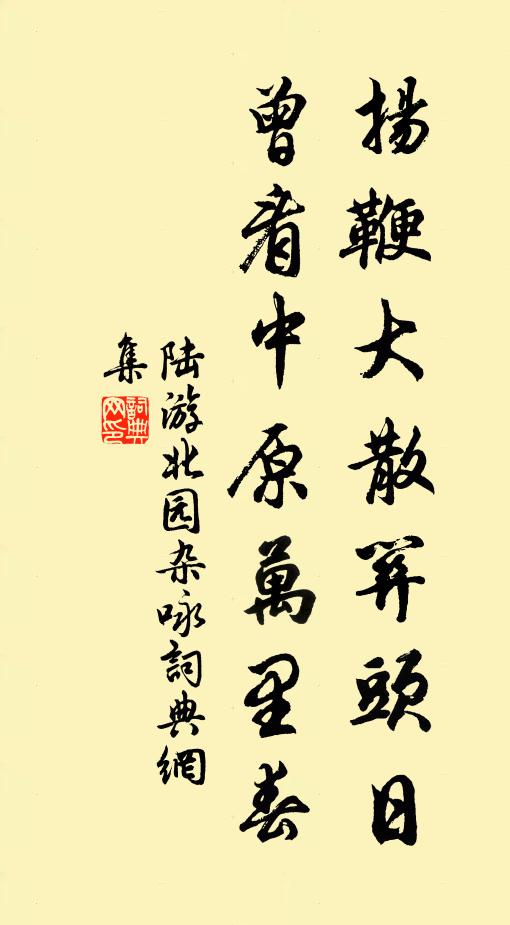 揚鞭大散關頭日
曾看中原萬里春
陆游北园杂咏詞典網
集
詞典網印